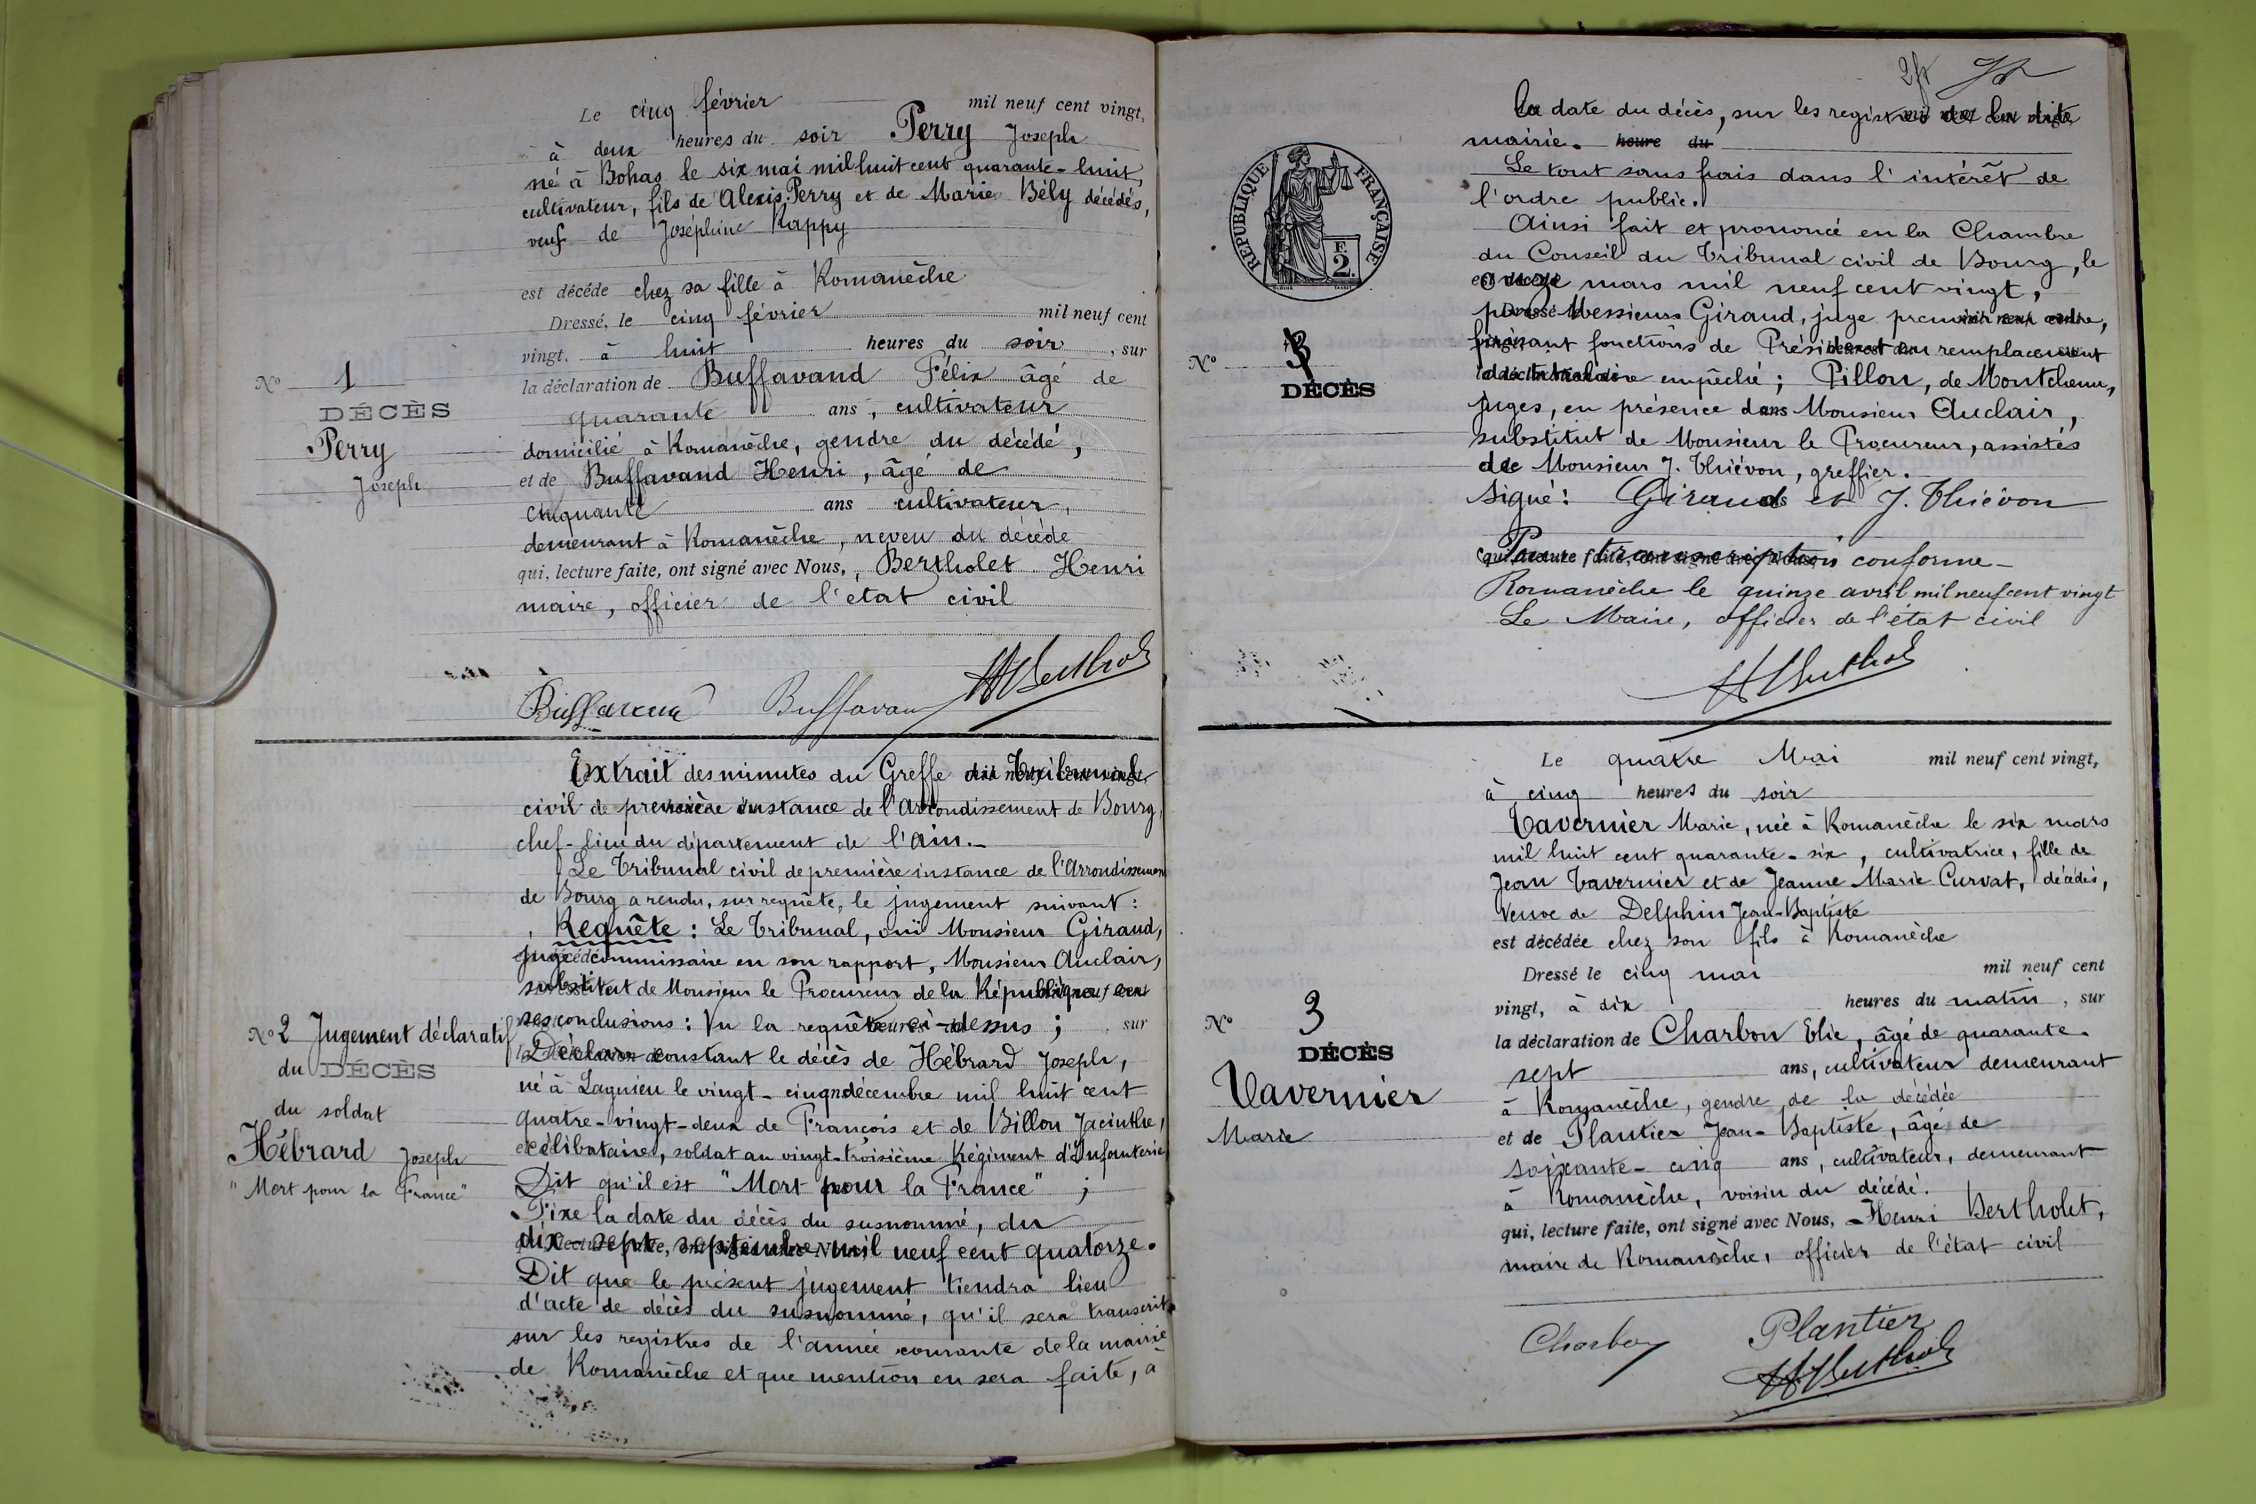 Le cinq février mil neuf cent vingt,
à deux heures du soir Perry Joseph
né à Bohas le six mai mil huit cent quarante-huit,
cultivateur, fils de Alexis Perry et de Marie Bély décédés,
veuf de Joséphine Rappy
est décédé chez sa fille à Romanèche
Dressé, le cinq février mil neuf cent
vingt, à huit heures du soir, sur
la déclaration de Buffavand Félix âgé de
quarante ans, cultivateur
domicilié à Romanèche, gendre du décédé,
et de Buffavand Henri, âgé de
cinquante ans cultivateur,
demeurant à Romanèche, neveu du décédé
qui, lecture faite, ont signé avec Nous, Bertholet Henri
maire, officier de l'état civil
Nº 1
DÉCÈS
Perry
Joseph
Buffavand Buffavand HBerthol
Extrait des minutes du Greffe du Tribunal
civil de première instance de l'Arrondissement de Bourg,
chef-lieu du département de l'Ain.
Le Tribunal civil de première instance de l'Arrondissement
de Bourg a rendu, sur requête, le jugement suivant :
Requête : Le Tribunal, ouï Monsieur Giraud,
juge commissaire en son rapport, Monsieur Auclair,
substitut de Monsieur le Procureur de la République en
ses conclusions : Vu la requête ci-dessus ;
Déclare constant le décès de Hébrard Joseph,
né à Lagnieu le vingt-cinq décembre mil huit cent
quatre-vingt-deux de François et de Billon Jacinthe,
célibataire, soldat au vingt-troisième Régiment d'Infanterie
Dit qu'il est "Mort pour la France" ;
Fixe la date du décès du susnommé, du
dix-sept septembre mil neuf cent quatorze.
Dit que le présent jugement tiendra lieu
d'acte de décès du susnommé, qu'il sera transcrit
sur les registres de l'année courante de la mairie
de Romanèche et que mention en sera faite, à
Nº 2 Jugement déclaratif
du DÉCÈS
du soldat
Hébrard Joseph
"Mort pour la France"
la date du décès, sur les registres de la dite
mairie. heure du
Le tout sans frais dans l'intérêt de
l'ordre public.
Ainsi fait et prononcé en la Chambre
du Conseil du Tribunal civil de Bourg, le
onze mars mil neuf cent vingt,
par Messieurs Giraud, juge premier en ordre,
faisant fonctions de Président en remplacement
du titulaire empêché ; Pillon, de Montchenu,
juges, en présence de Monsieur Auclair,
substitut de Monsieur le Procureur, assistés
de Monsieur J. Thiévon, greffier.
Signé : Giraud et J. Thiévon
Pour transcription conforme
Romanèche le quinze avril mil neuf cent vingt
Le Maire, officier de l'état civil
HBerthol
RÉPUBLIQUE FRANÇAISE
F.
2.
Nº 3
DÉCÈS
Le quatre Mai mil neuf cent vingt,
à cinq heures du soir
Tavernier Marie, née à Romanèche le six mars
mil huit cent quarante-six, cultivatrice, fille de
Jean Tavernier et de Jeanne Marie Curvat, décédés,
Veuve de Delphin Jean-Baptiste
est décédée chez son fils à Romanèche
Dressé le cinq mai mil neuf cent
vingt, à dix heures du matin, sur
la déclaration de Charbon Elie, âgé de quarante-
sept ans, cultivateur demeurant
à Romanèche, gendre de la décédée
et de Plantier Jean-Baptiste, âgé de
soixante-cinq ans, cultivateur, demeurant
à Romanèche, voisin du décédé.
qui, lecture faite, ont signé avec Nous, Henri Bertholet,
maire de Romanèche, officier de l'état civil
Nº 3
DÉCÈS
Tavernier
Marie
Charbon Plantier
HBerthol